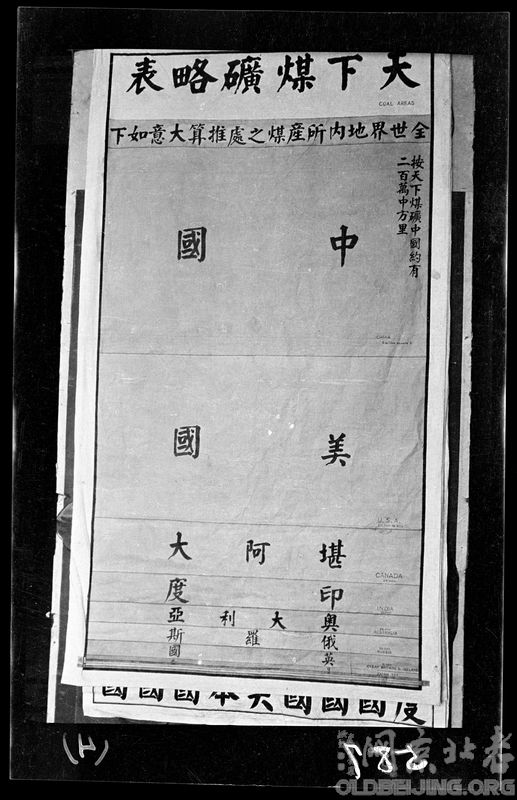 天下煤礦略表
COAL AREAS
全世界地內所產煤之處推算大意如下
按天下煤礦中國約有
二百萬中方里
中國
CHINA
美國
U.S.A.
堪阿大
CANADA
印度
INDIA
奧大利亞
AUSTRALIA
俄羅斯
RUSSIA
英國
GREAT BRITAIN & IRELAND
度國國國大本國國國
老北京網
OLDBEIJING.ORG